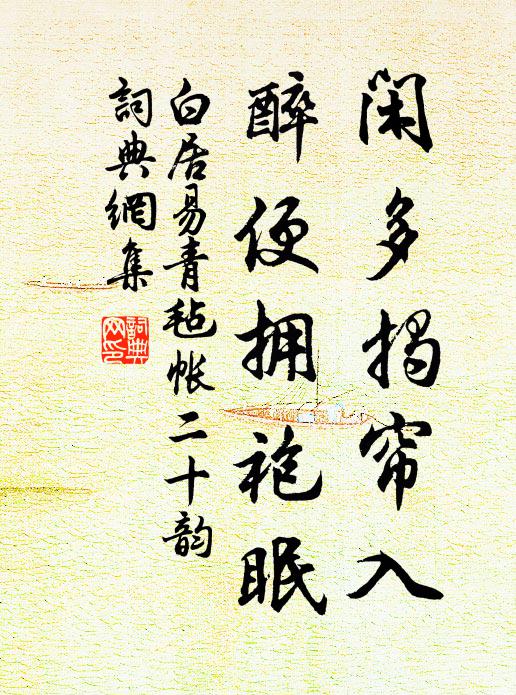 閑多揭帘入
醉便拥袍眠
白居易青毡帐二十韵
詞典網集
詞典
网印